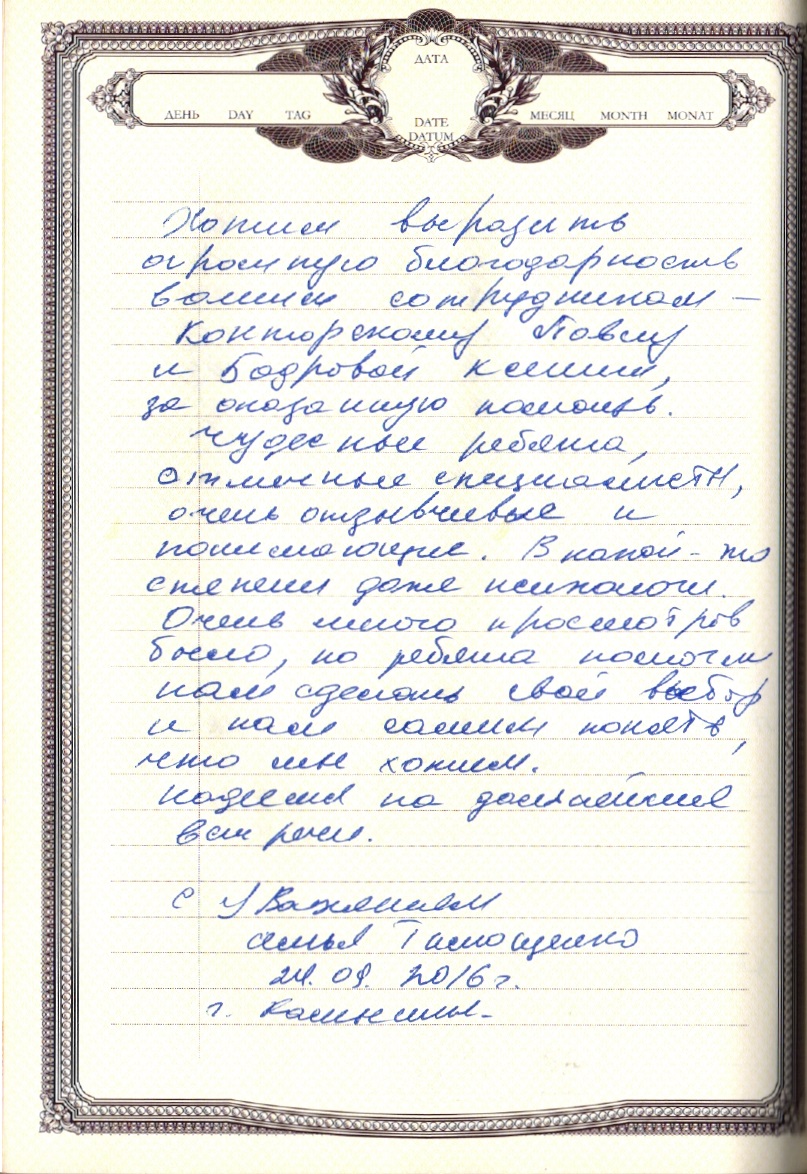 ДАТА
ДЕНЬ DAY TAG
DATE
DATUM
МЕСЯЦ MONTH MONAT
Хотим выразить
огромную благодарность
вашим сотрудникам —
Конторскому Павлу
и Бодровой Ксении,
за оказанную помощь.
Чудесные ребята,
отличные специалисты,
очень отзывчивые и
понимающие. В какой-то
степени даже психологи.
Очень много просмотров
было, но ребята помогли
нам сделать свой выбор
и нам самим понять,
что мы хотим.
Надеемся на дальнейшие
встречи.
С уважением
семья Тимощенко
24.09. 2016 г.
г.